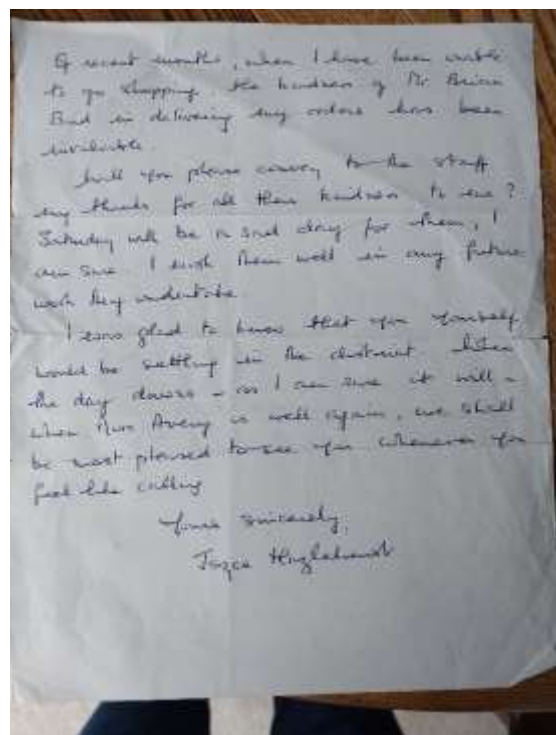 Of recent months, when I have been unable
to go shopping, the kindness of Mr Brian
Bird in delivering my orders has been
invaluable.
Will you please convey to the staff
my thanks for all their kindness to me?
Saturday will be a sad day for them, I
am sure. I wish them well in any future
work they undertake.
I was glad to know that you yourself
would be settling in the district. When
the day dawns - as I am sure it will -
when Mrs Avery is well again, we shall
be most pleased to see you whenever you
feel like calling
Yours sincerely,
Joyce